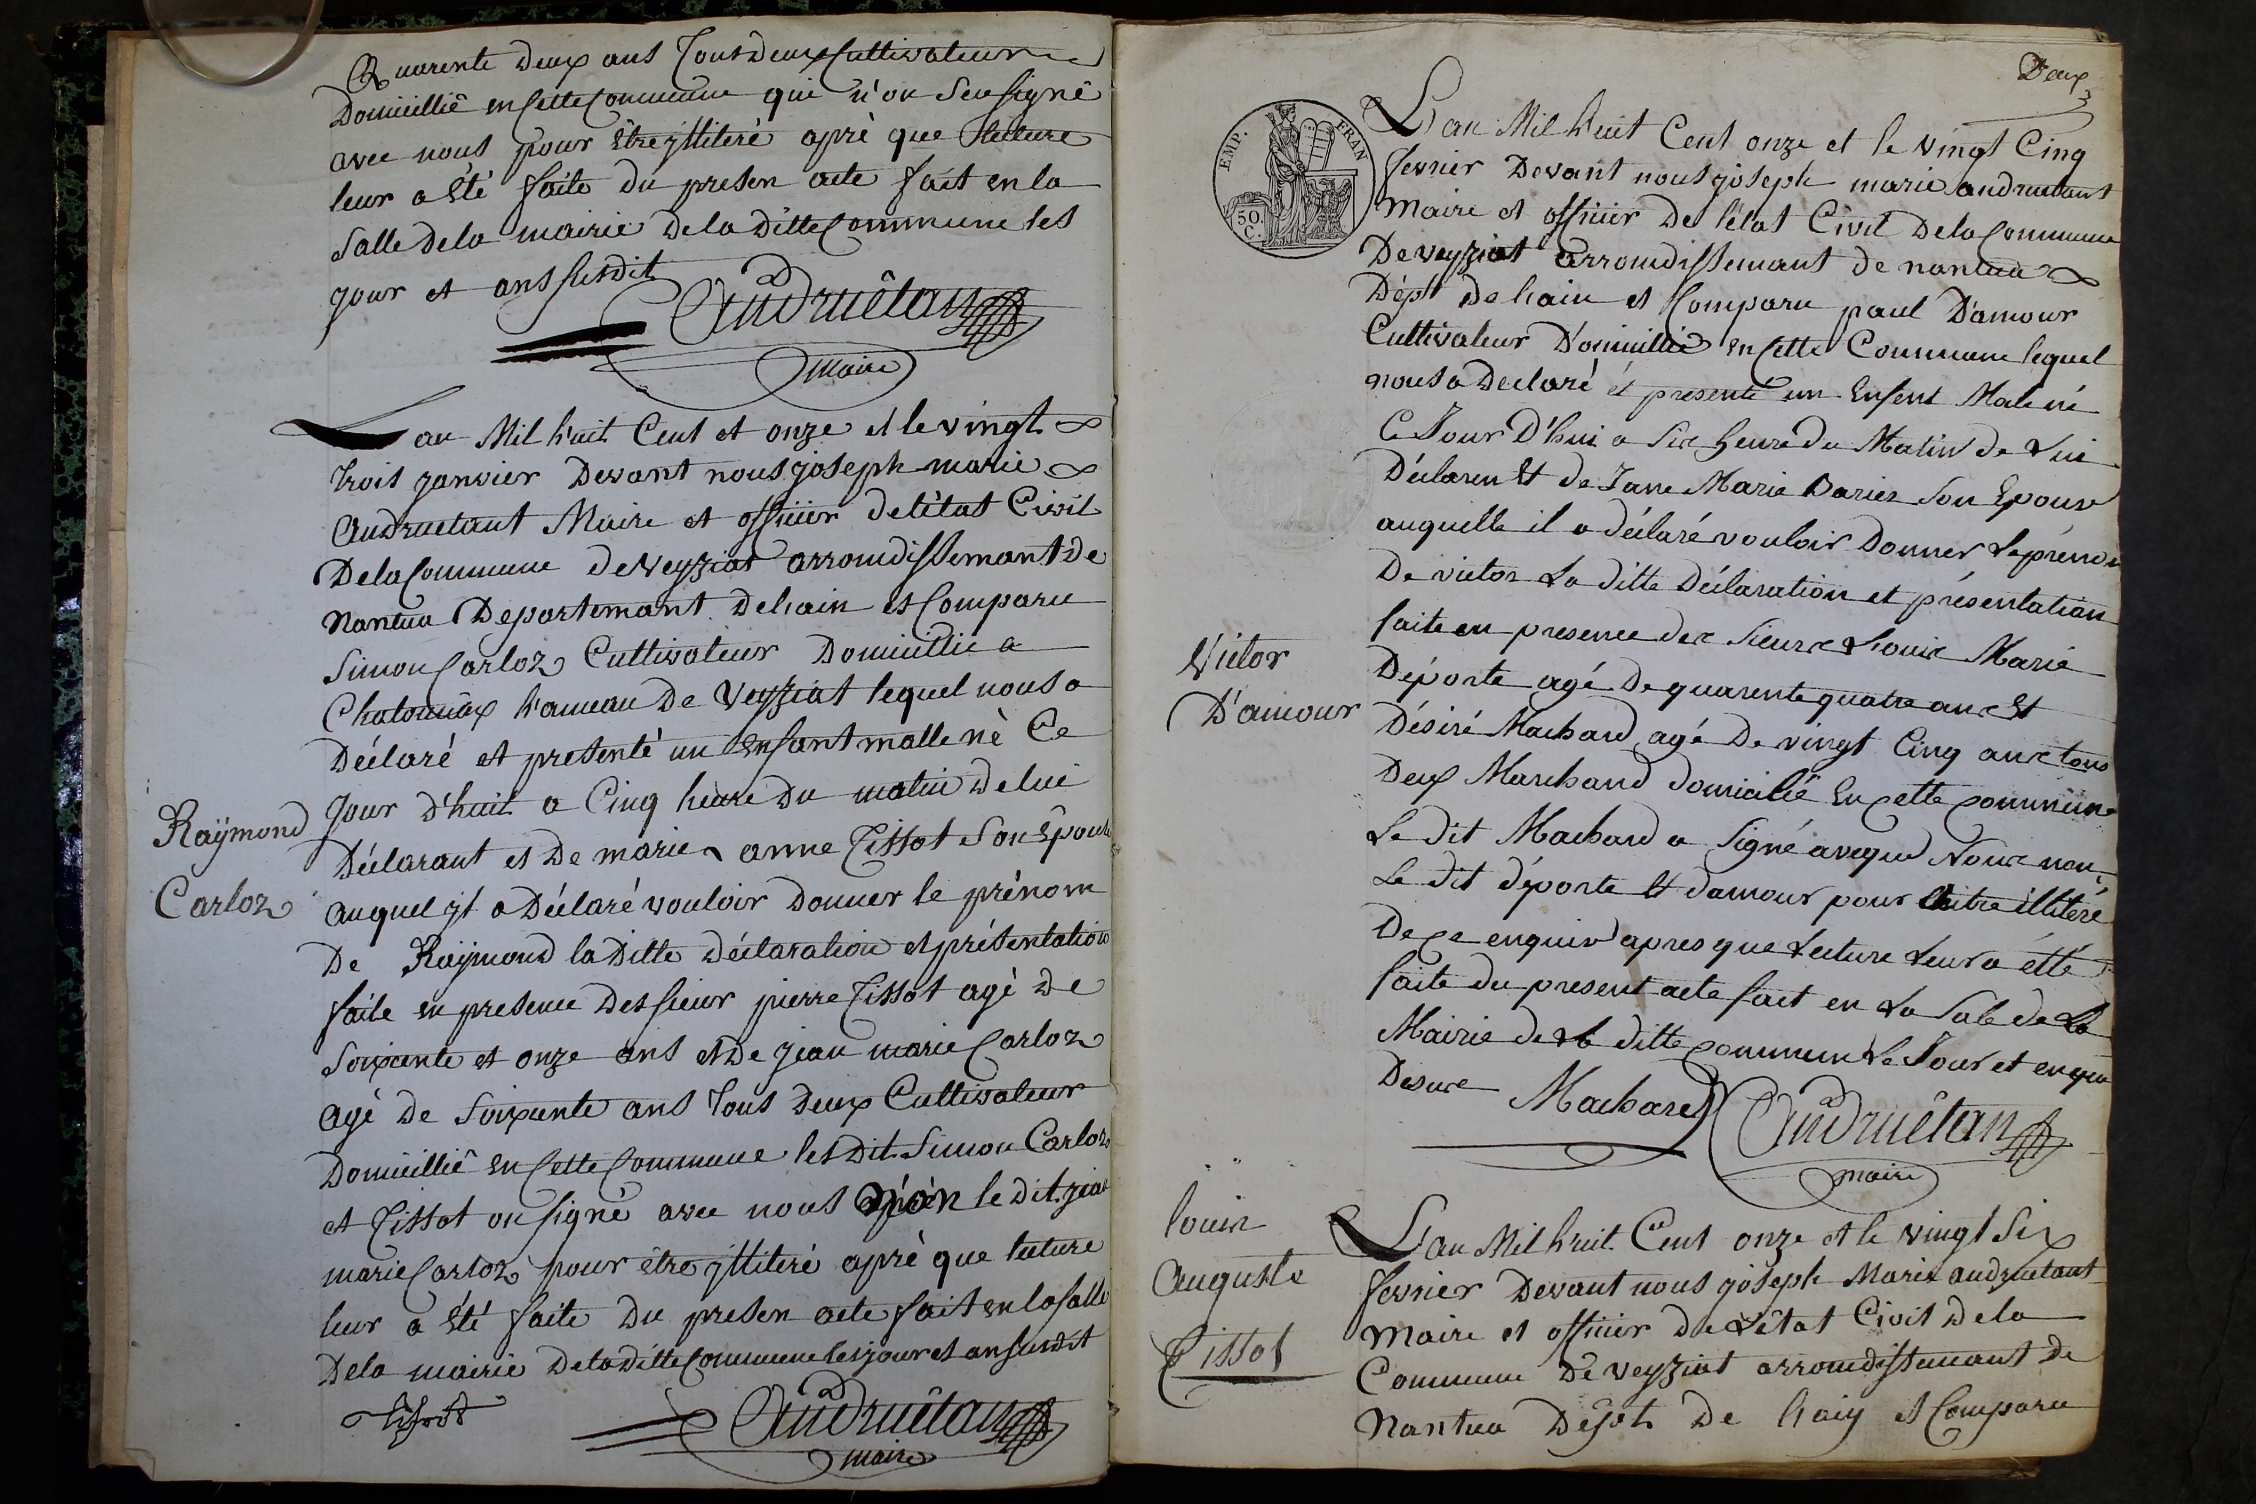 Quarente deux ans Tout deux Cultivateur
Domicillié en Cette Commune qui n'on Seu signé
avec nous pour être illiteré aprè que lecture
leur a été faite du presen acte fait en la
Salle dela mairie dela ditte Commune les
jour et ans susdit
Andruétan
maire
Lan Mil huit Cent et onze et le vingt
trois janvier Devant nous joseph marie
Andruetant Maire et officier de létat Civil
Dela Commune de Veyziat arroindissemant de
Nantua Departemant de hain est Comparu
Simon Carloz Cultivateur Domicillié a
Chatonnax hameau De Veyziat lequel nous a
Déclaré et presenté un enfant malle nè Ce
Jour d'huit a Cinq heure Du matin de lui
Raÿmond
Carloz
Déclarant et De marie anne Tissot Son Epouse
auquel yl a Déclaré vouloir Donner le prénom
De Raÿmond la Ditte déclaration et présentation
faite en presence Des sieur pierre Tissot agè De
Soixente et onze ans et De jean marie Carloz
agé De Soixente ans tous Deux Cultivateur
Domicillié en Cette Commune les Dit Simon Carloz
et Tissot on signé avec nous non le Dit jean
marie Carloz pour être illiteré aprè que lecture
leur a été faite Du presen acte fait en la salle
Dela mairie Dela Ditte Commune les jour et an susdit
Tissot
Andruétan
maire
Deux
EMP. FRAN
50. C.
Lan Mil huit Cent onze et le vingt Cinq
fevrier Devant nous joseph marie andruetant
Maire et officier De létat Civil Dela Commune
De veyziat arroindissemant de nantua
Dépt De hain et Comparu paul D'amour
Cultivateur D'omicillié en Cette Commune lequel
nous a Declaré et presenté un Enfent Male né
Ce Jour D'hui a Six heure du Matin de Lui
Déclaren Et de Jane Marie Darier Son Epouse
auquelle il a déclaré vouloir Donner Le prénom
De victor La ditte Déclaration et présentation
faite en presence des Sieurs Louis Marie
Victor
D'amour
Déporte agé De quarente quatre ans Et
Désiré Machard agé De vingt Cinq ans tous
Deux Marchand domicilié En cette commune
Le dit Machard a Signé aveque Nous non
Le dit déporte Et damour pour être illiteré
De ce enquir apres que Lecture Leur a été
faite du present acte fait en La Sale de La
Mairie de La ditte commune Le Jour et en que
Desus
Machard
Andruétan
maire
louis
Auguste
Tissot
Lan Mil huit Cent onze et le vingt Six
fevrier Devant nous joseph Marie andruetant
Maire et officier De Létat Civil Dela
Commune De veyziat arroindissemant De
Nantua Dépt. De hain et Comparu